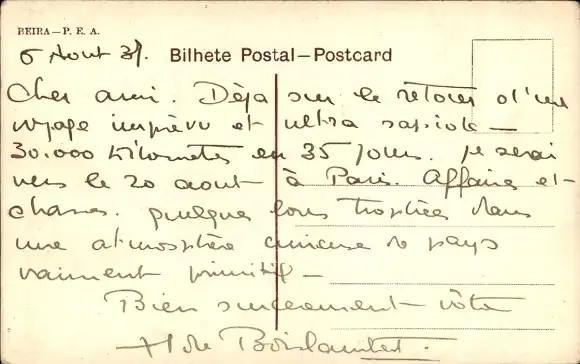 BEIRA—P. E. A.
6 Aout 37. Bilhete Postal—Postcard
Cher ami. Déja sur le retour d'un
voyage imprévu et ultra rapide —
30.000 kilometres en 35 jours. je serai
vers le 20 aout à Paris. Affaires et
chasses. quelques bons trophées dans
une atmosphère curieuse de pays
vraiment primitif —
Bien sincerement votre
H de Boislambert.